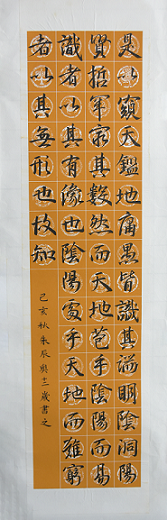 是以窺天鑑地庸愚皆識其端明陰洞陽
賢哲罕窮其數然而天地苞乎陰陽而易
識者以其有像也陰陽處乎天地而難窮
者以其無形也故知
己亥秋朱辰歲書之